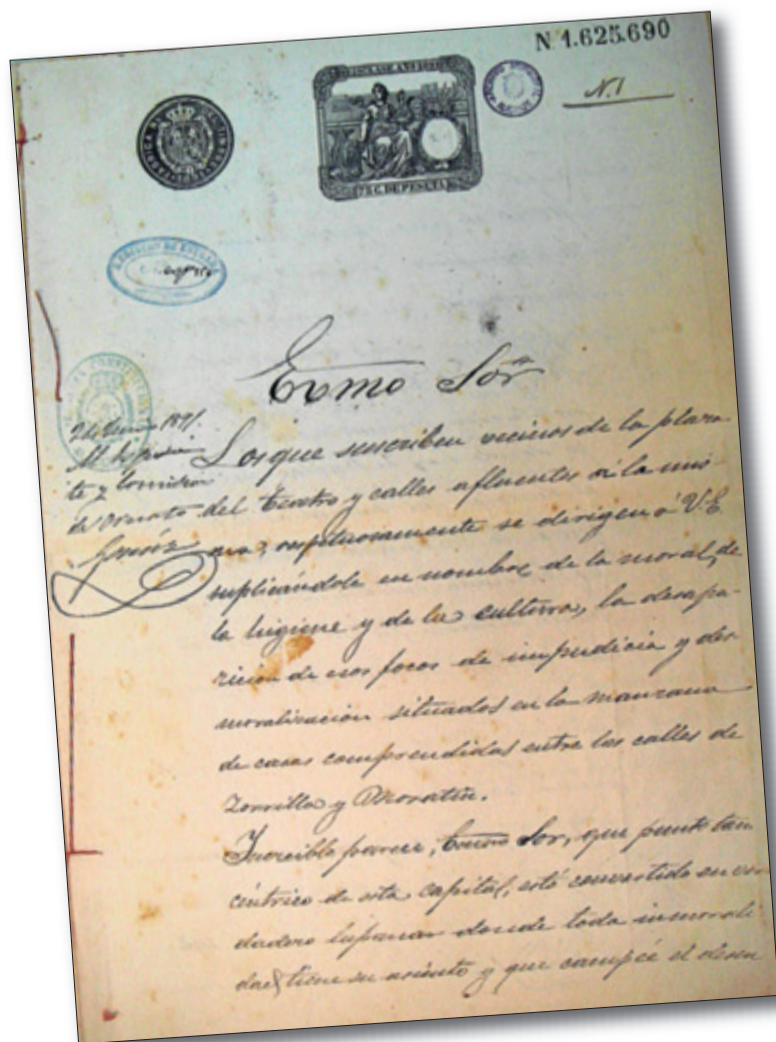 N 1.625.690
N. 1
75 C. DE PESETA
Exmo Sor
Los que suscriben vecinos de la plaza
del Teatro y calles afluentes a la mis-
ma, respetuosamente se dirigen a V.E.
suplicándole en nombre de la moral, de
la higiene y de la cultura, la desapa-
rición de esos focos de impudicia y des-
moralización situados en la manzana
de casas comprendidas entre las calles de
Zorrilla y Moratín.
Increible parece, Exmo Sor, que punto tan
céntrico de esta capital, esté convertido en ver
dadero lupanar donde toda inmorali
dad tiene su asiento y que campée el desen